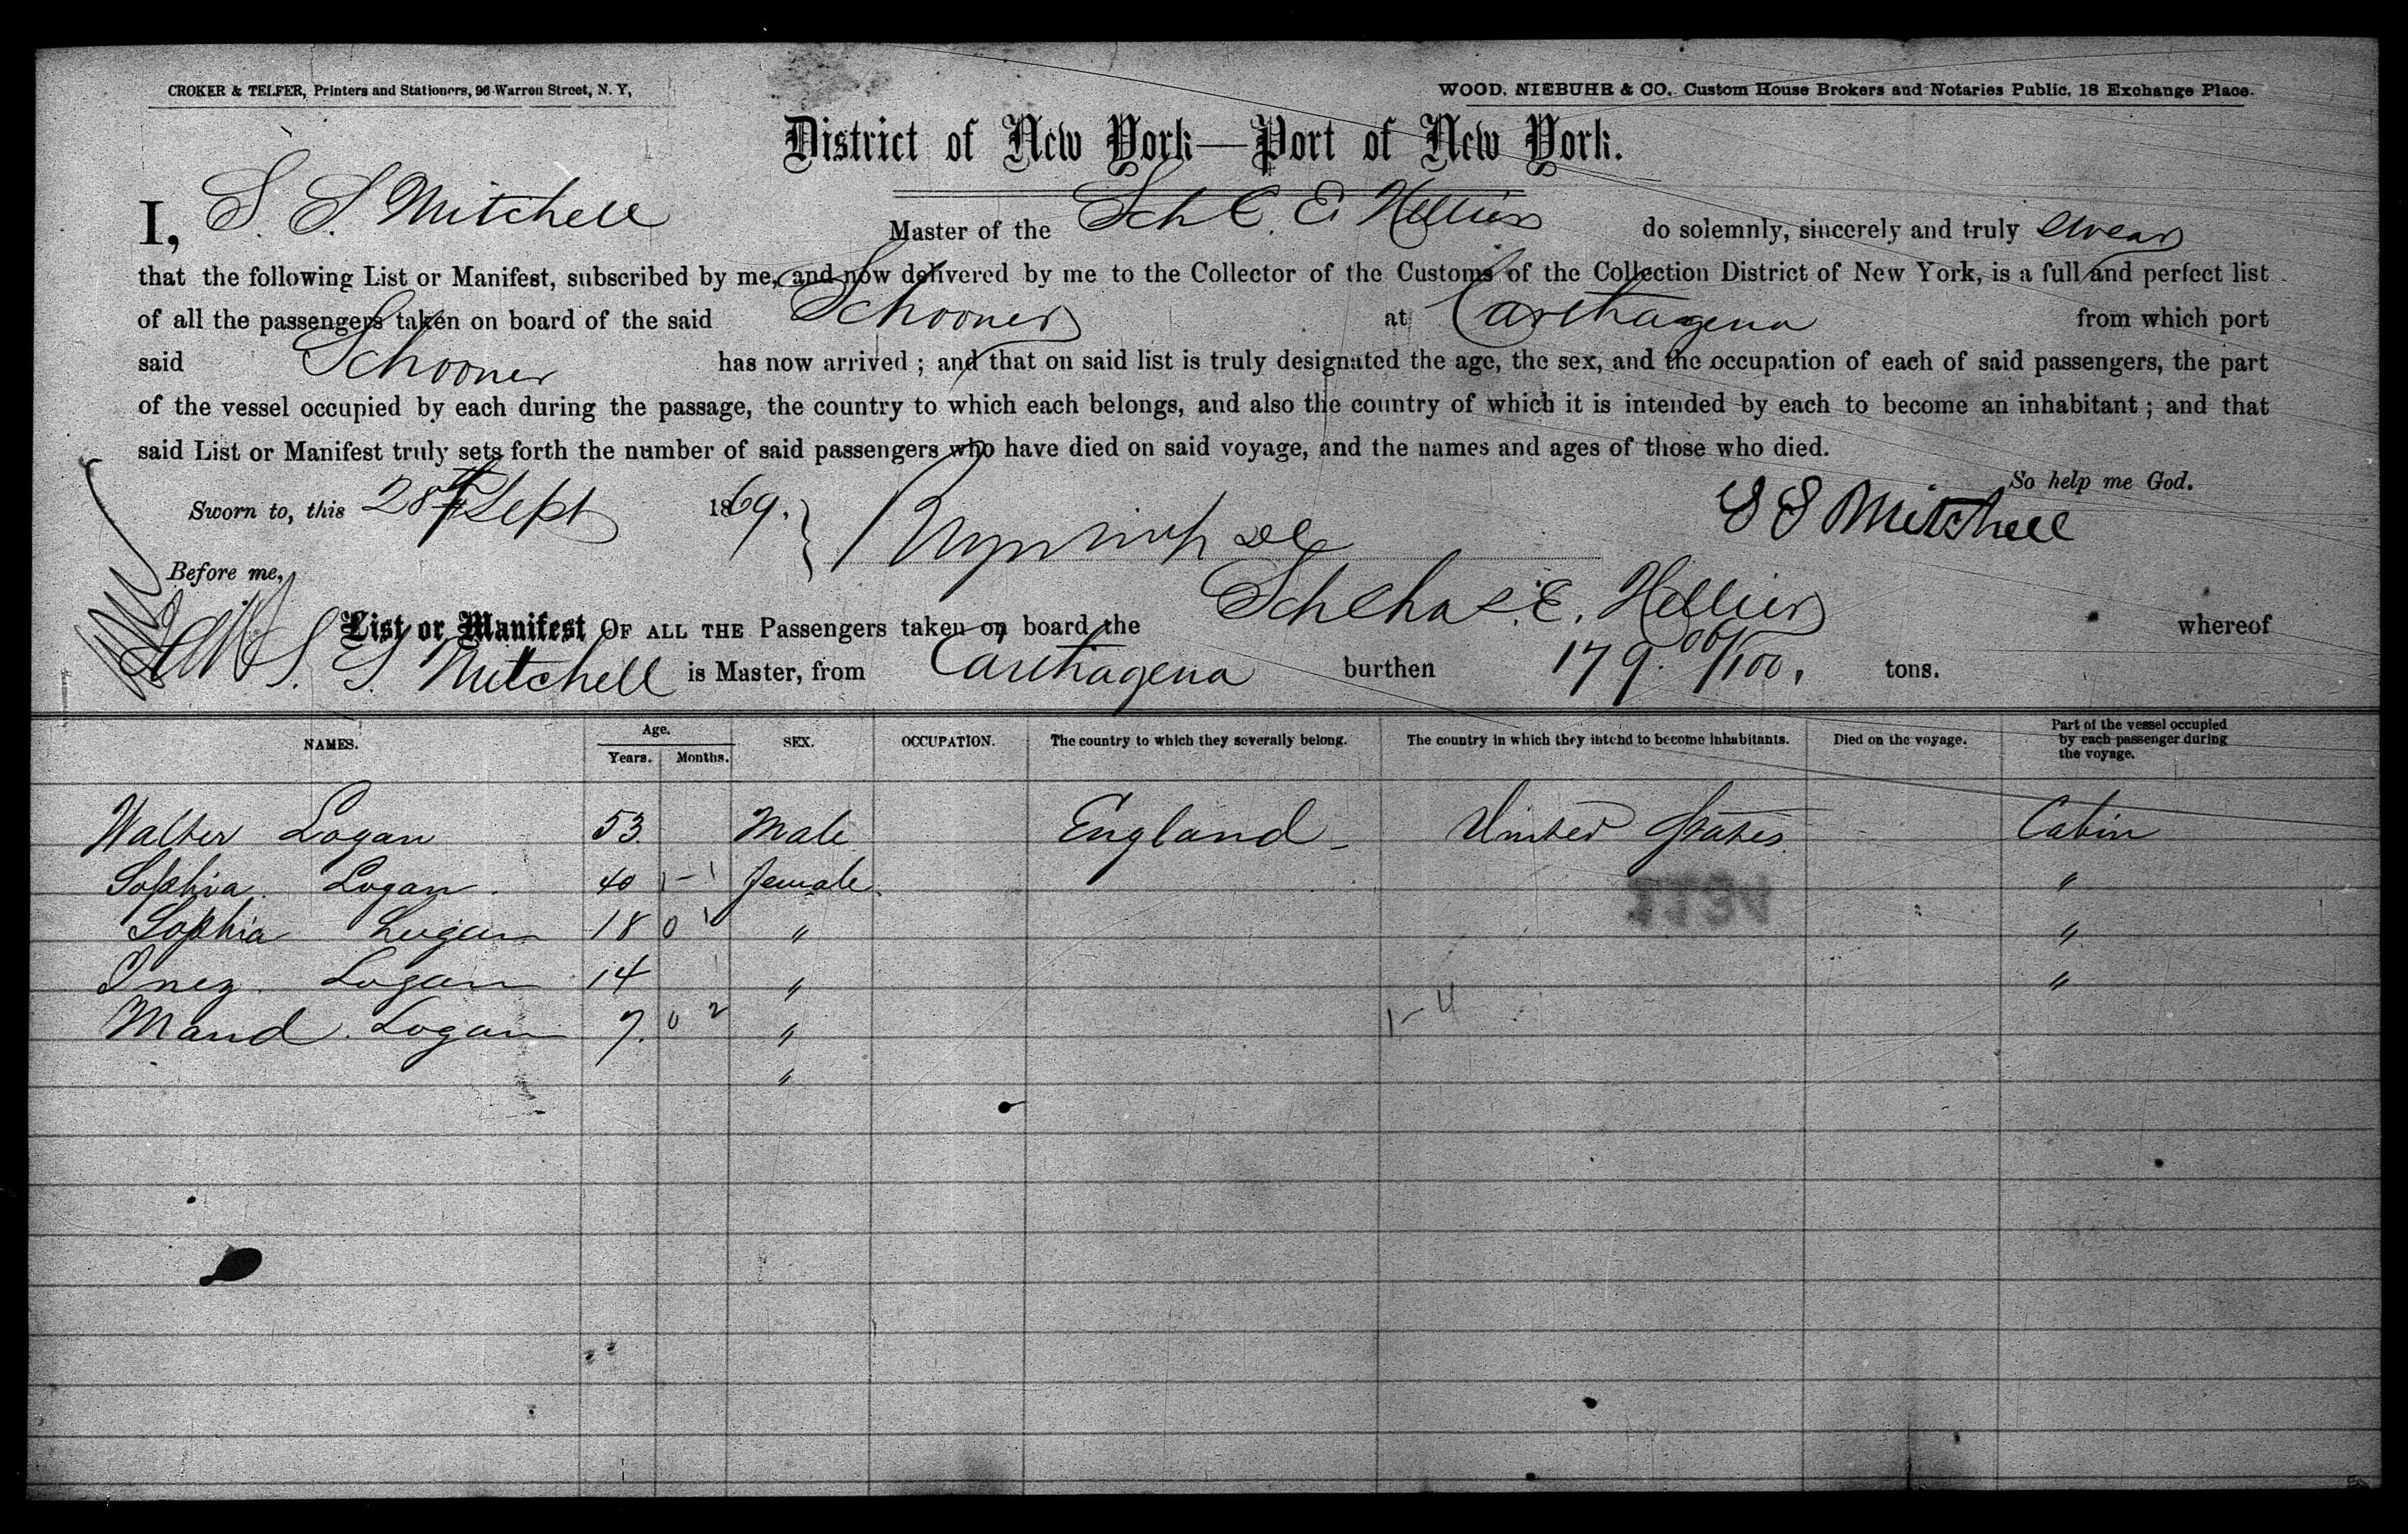 CROKER & TELFER, Printers and Stationers, 96 Warren Street, N. Y,
WOOD, NIEBUHR & CO. Custom House Brokers and Notaries Public, 18 Exchange Place.
District of New York—Port of New York.
I, S. S. Mitchell Master of the Sch C. E. Hellier do solemnly, sincerely and truly swear
that the following List or Manifest, subscribed by me, and now delivered by me to the Collector of the Customs of the Collection District of New York, is a full and perfect list
of all the passengers taken on board of the said Schooner at Carthagena from which port
said Schooner has now arrived ; and that on said list is truly designated the age, the sex, and the occupation of each of said passengers, the part
of the vessel occupied by each during the passage, the country to which each belongs, and also the country of which it is intended by each to become an inhabitant ; and that
said List or Manifest truly sets forth the number of said passengers who have died on said voyage, and the names and ages of those who died.
So help me God.
Sworn to, this 28th Sept 1869. S S Mitchell
Before me,
List or Manifest OF ALL THE Passengers taken on board the Sch Chas. E. Hellier whereof
S. S. Mitchell is Master, from Carthagena burthen 179.06/100. tons.
NAMES. Age. Years. Months. SEX. OCCUPATION. The country to which they severally belong. The country in which they intend to become inhabitants. Died on the voyage. Part of the vessel occupied by each passenger during the voyage.
Walter Logan 53. Male England - United States. Cabin
Sophia. Logan. 40 1-1 female. "
Sophia Logan 18 0 1 " "
Inez. Logan 14 " "
Maud. Logan 7. 0 2 " 1-4
"